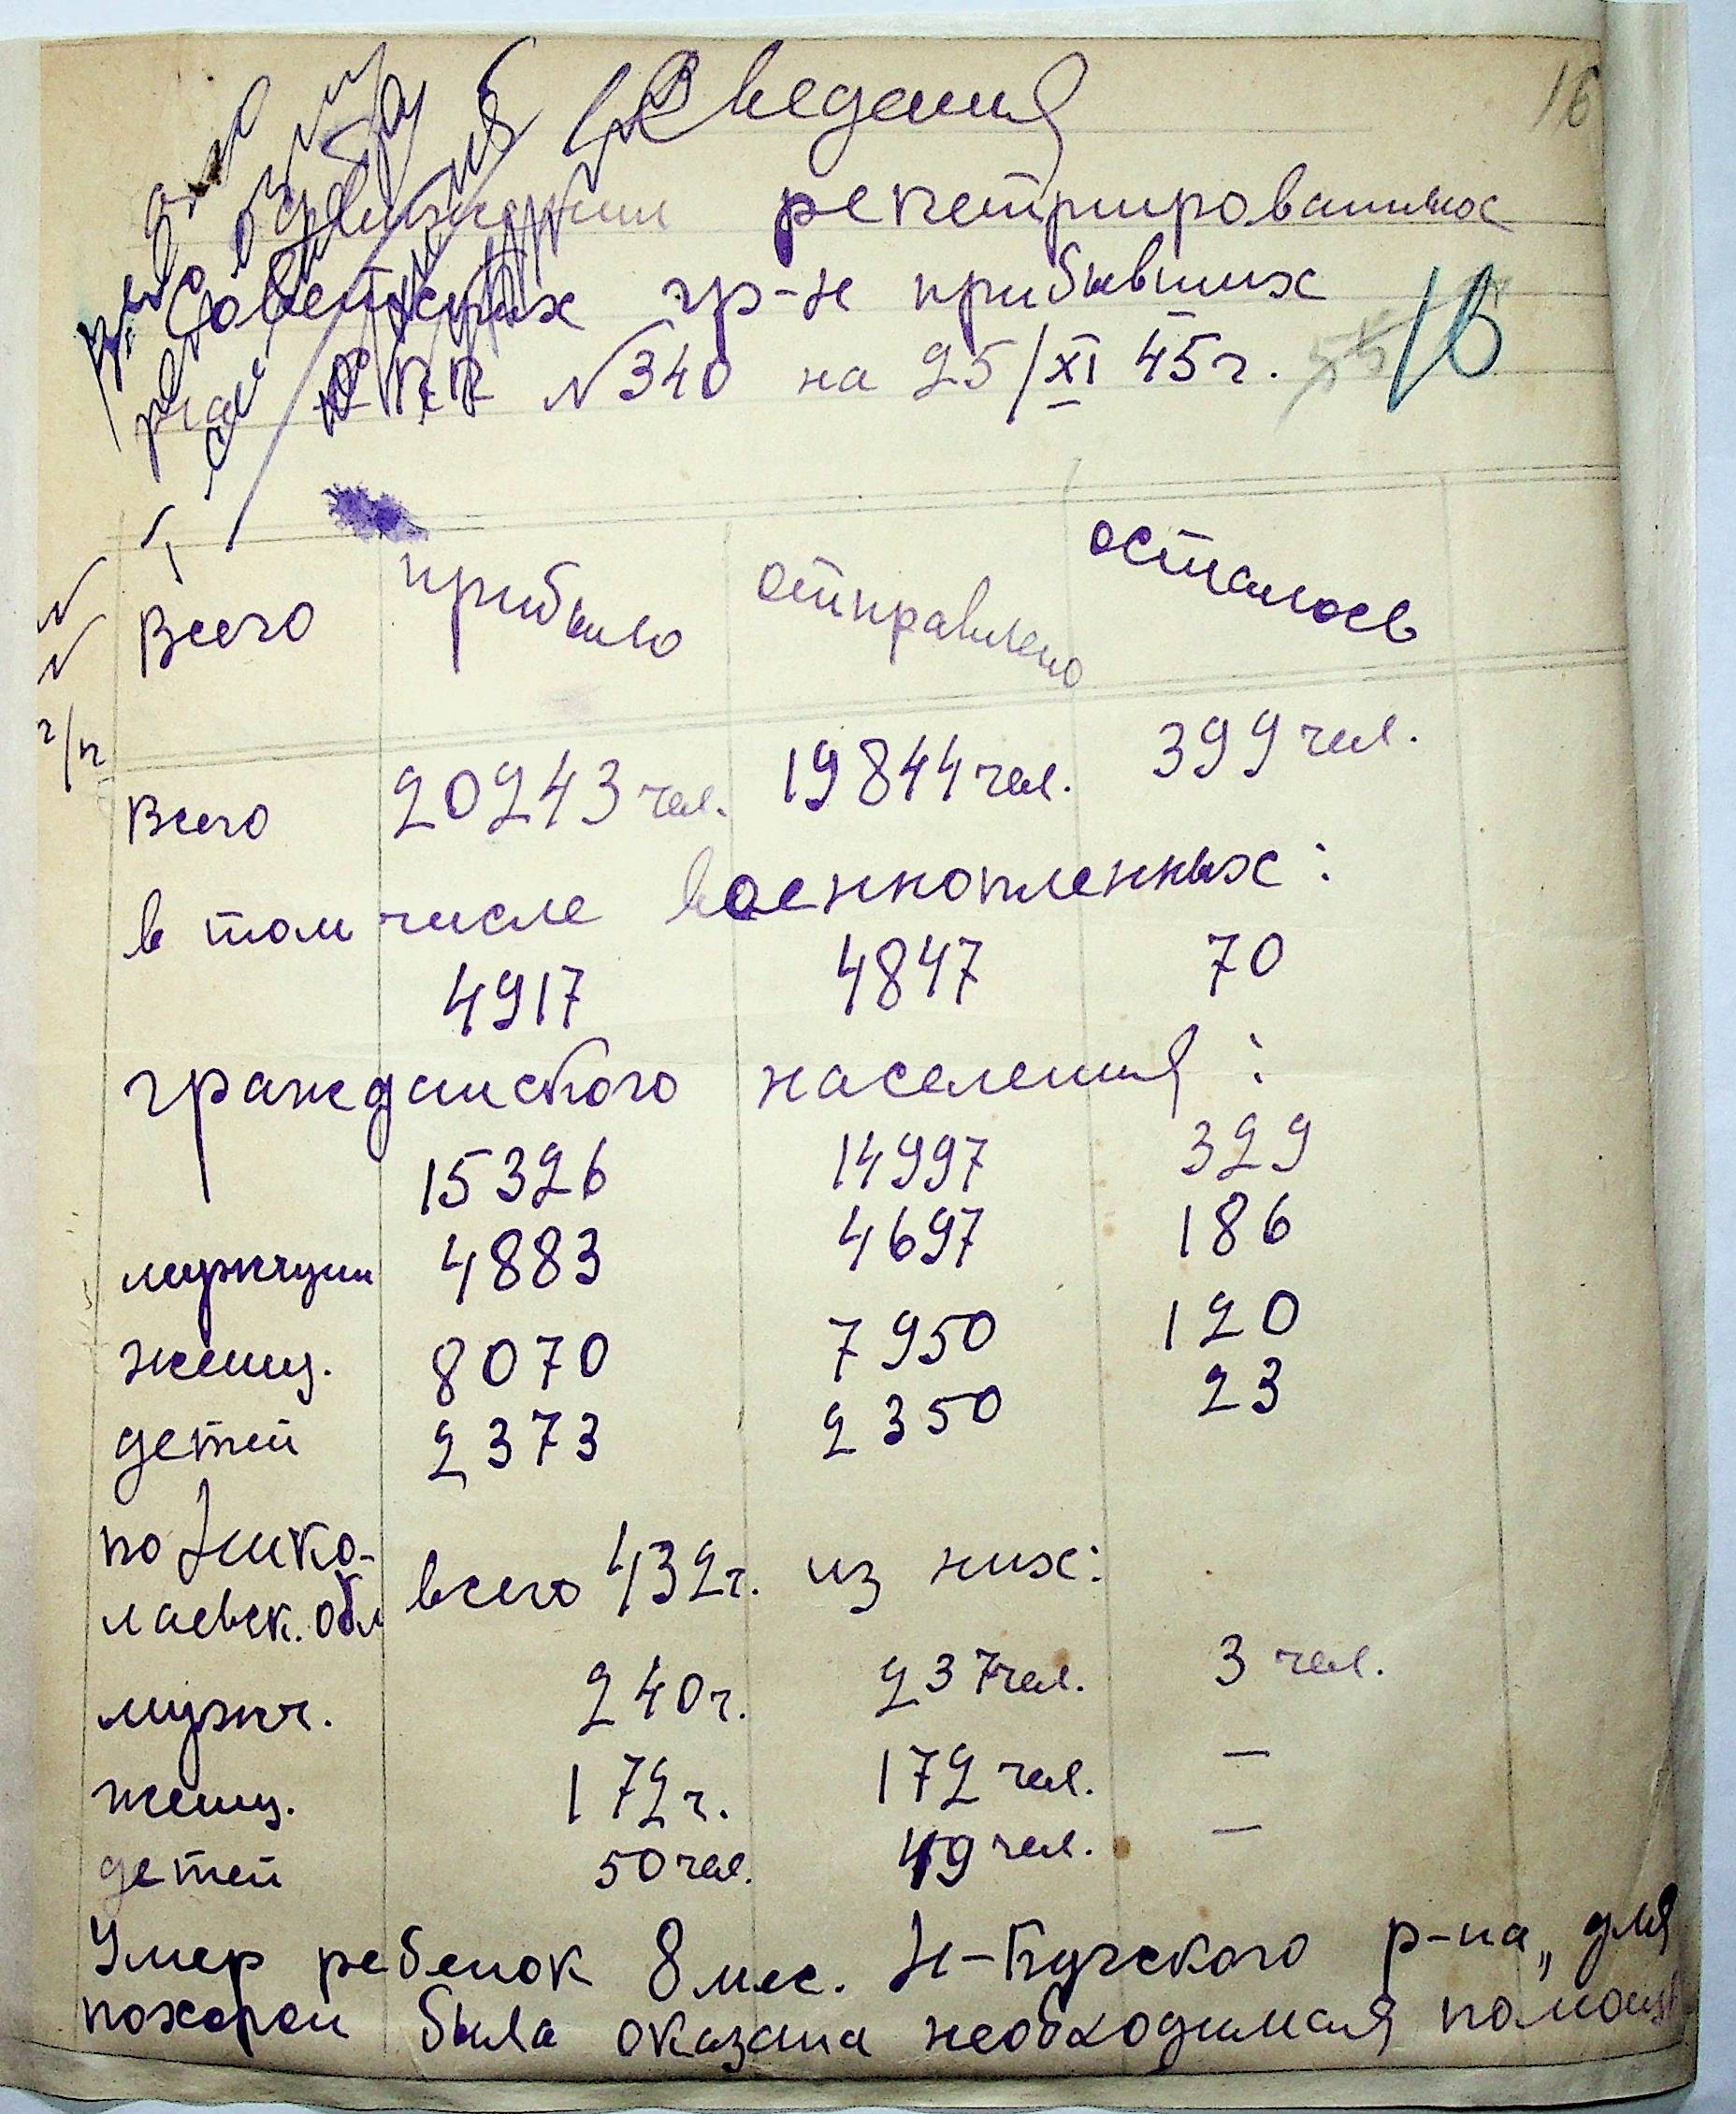 16
Сведения
о движении репетриированных
Советских гр-н прибывших
ППП №340 на 25/XI 45г.
16
Всего прибыло отправлено осталось
Всего 20243 чел. 19844 чел. 399 чел.
в том числе военнопленных:
4917 4847 70
гражданского населения:
15326 14997 329
мужчин 4883 4697 186
женщ. 8070 7950 120
детей 2373 2350 23
по Нико-
лаевск. обл всего 432 ч. из них:
мужч. 240 ч. 237 чел. 3 чел.
женщ. 172 ч. 172 чел. —
детей 50 чел. 49 чел. —
Умер ребенок 8 мес. Н-Бугского р-на „ для
похорон была оказана необходимая помощь